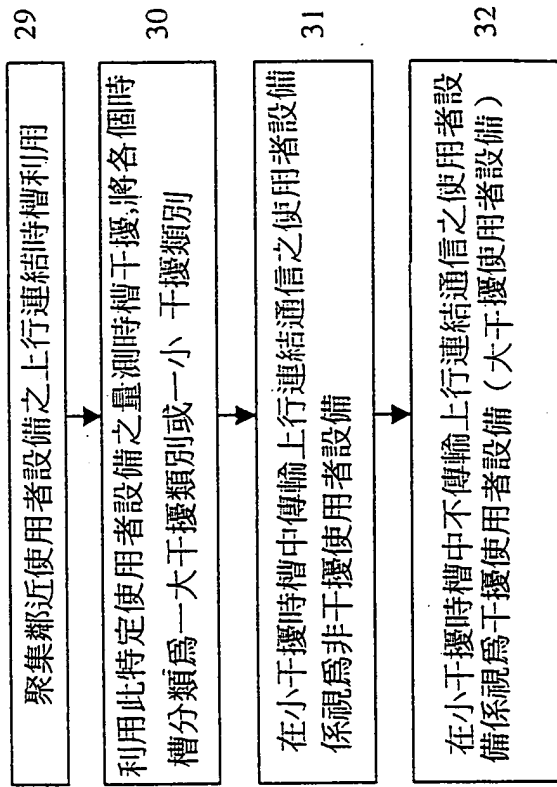 聚集鄰近使用者設備之上行連結時槽利用
29
利用此特定使用者設備之量測時槽干擾,將各個時
槽分類爲一大干擾類別或一小 干擾類別
30
在小干擾時槽中傳輸上行連結通信之使用者設備
係視爲非干擾使用者設備
31
在小干擾時槽中不傳輸上行連結通信之使用者設
備係視爲干擾使用者設備（大干擾使用者設備）
32